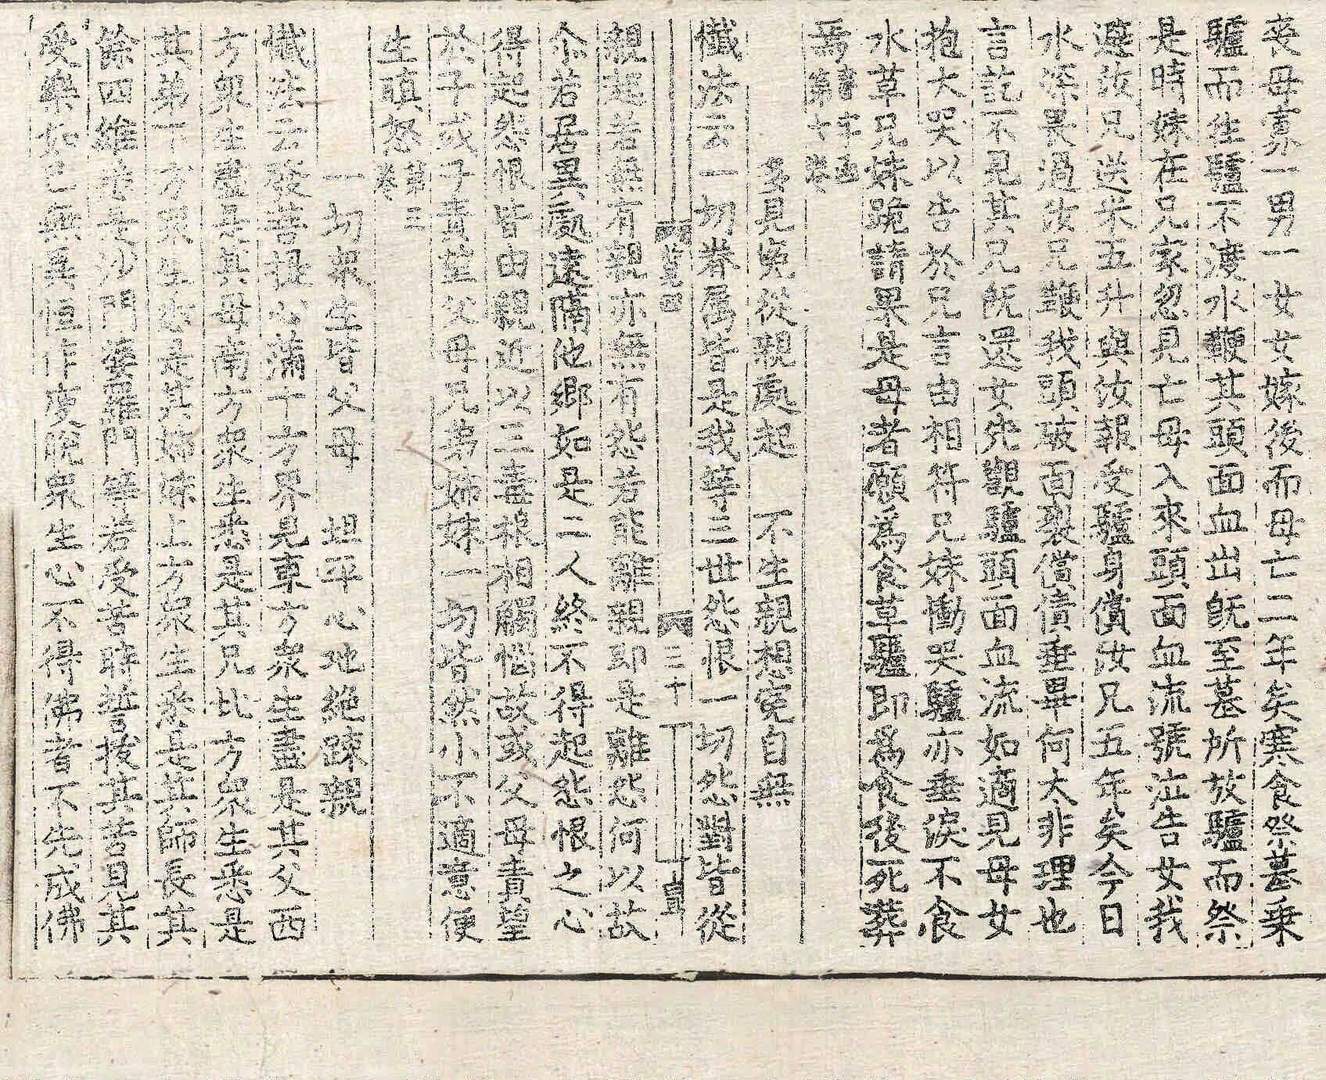 喪母寡一男一女女嫁後而母亡二年矣寒食祭墓乗
驢而往驢不渡水鞭其頭面血出旣至墓所放驢而祭
是時妹在兄家忽見亡母入來頭面血流號泣告女我
避汝兄送米五升與汝報受驢身償汝兄五年矣今日
水深畏過汝兄鞭我頭破面裂償債垂畢何大非理也
言訖不見其兄旣還女先觀驢頭面血流如適見母女
抱大哭以告於兄言由相符兄妹慟哭驢亦垂淚不食
水草兄妹跪請果是母者願爲食草驢即爲食後死葬
焉
第七卷
多見寃從親處起 不生親想寃自無
懺法云一切眷属皆是我等三世怨根一切怨對皆從
三十
親起若無有親亦無有怨若能離親即是離怨何以故
尒若居異處遠隔他郷如是二人終不得起怨恨之心
得起怨恨皆由親近以三毒根相觸惱故或父母責望
於子或子責望父母兄弟姉妹一切皆然小不適意便
生瞋怒 第三卷
一切衆生皆父母 坦平心地絶踈親
懺法云發菩提心滿十方界見東方衆生盡是其父西
方衆生盡是其母南方衆生悉是其兄北方衆生悉是
其弟下方衆生悉是其姉妹上方衆生悉是其師長其
餘四維悉是沙門婆羅門等若受苦時誓拔其苦見其
受樂如己無異恒作度脫衆生心不得佛者不先成佛